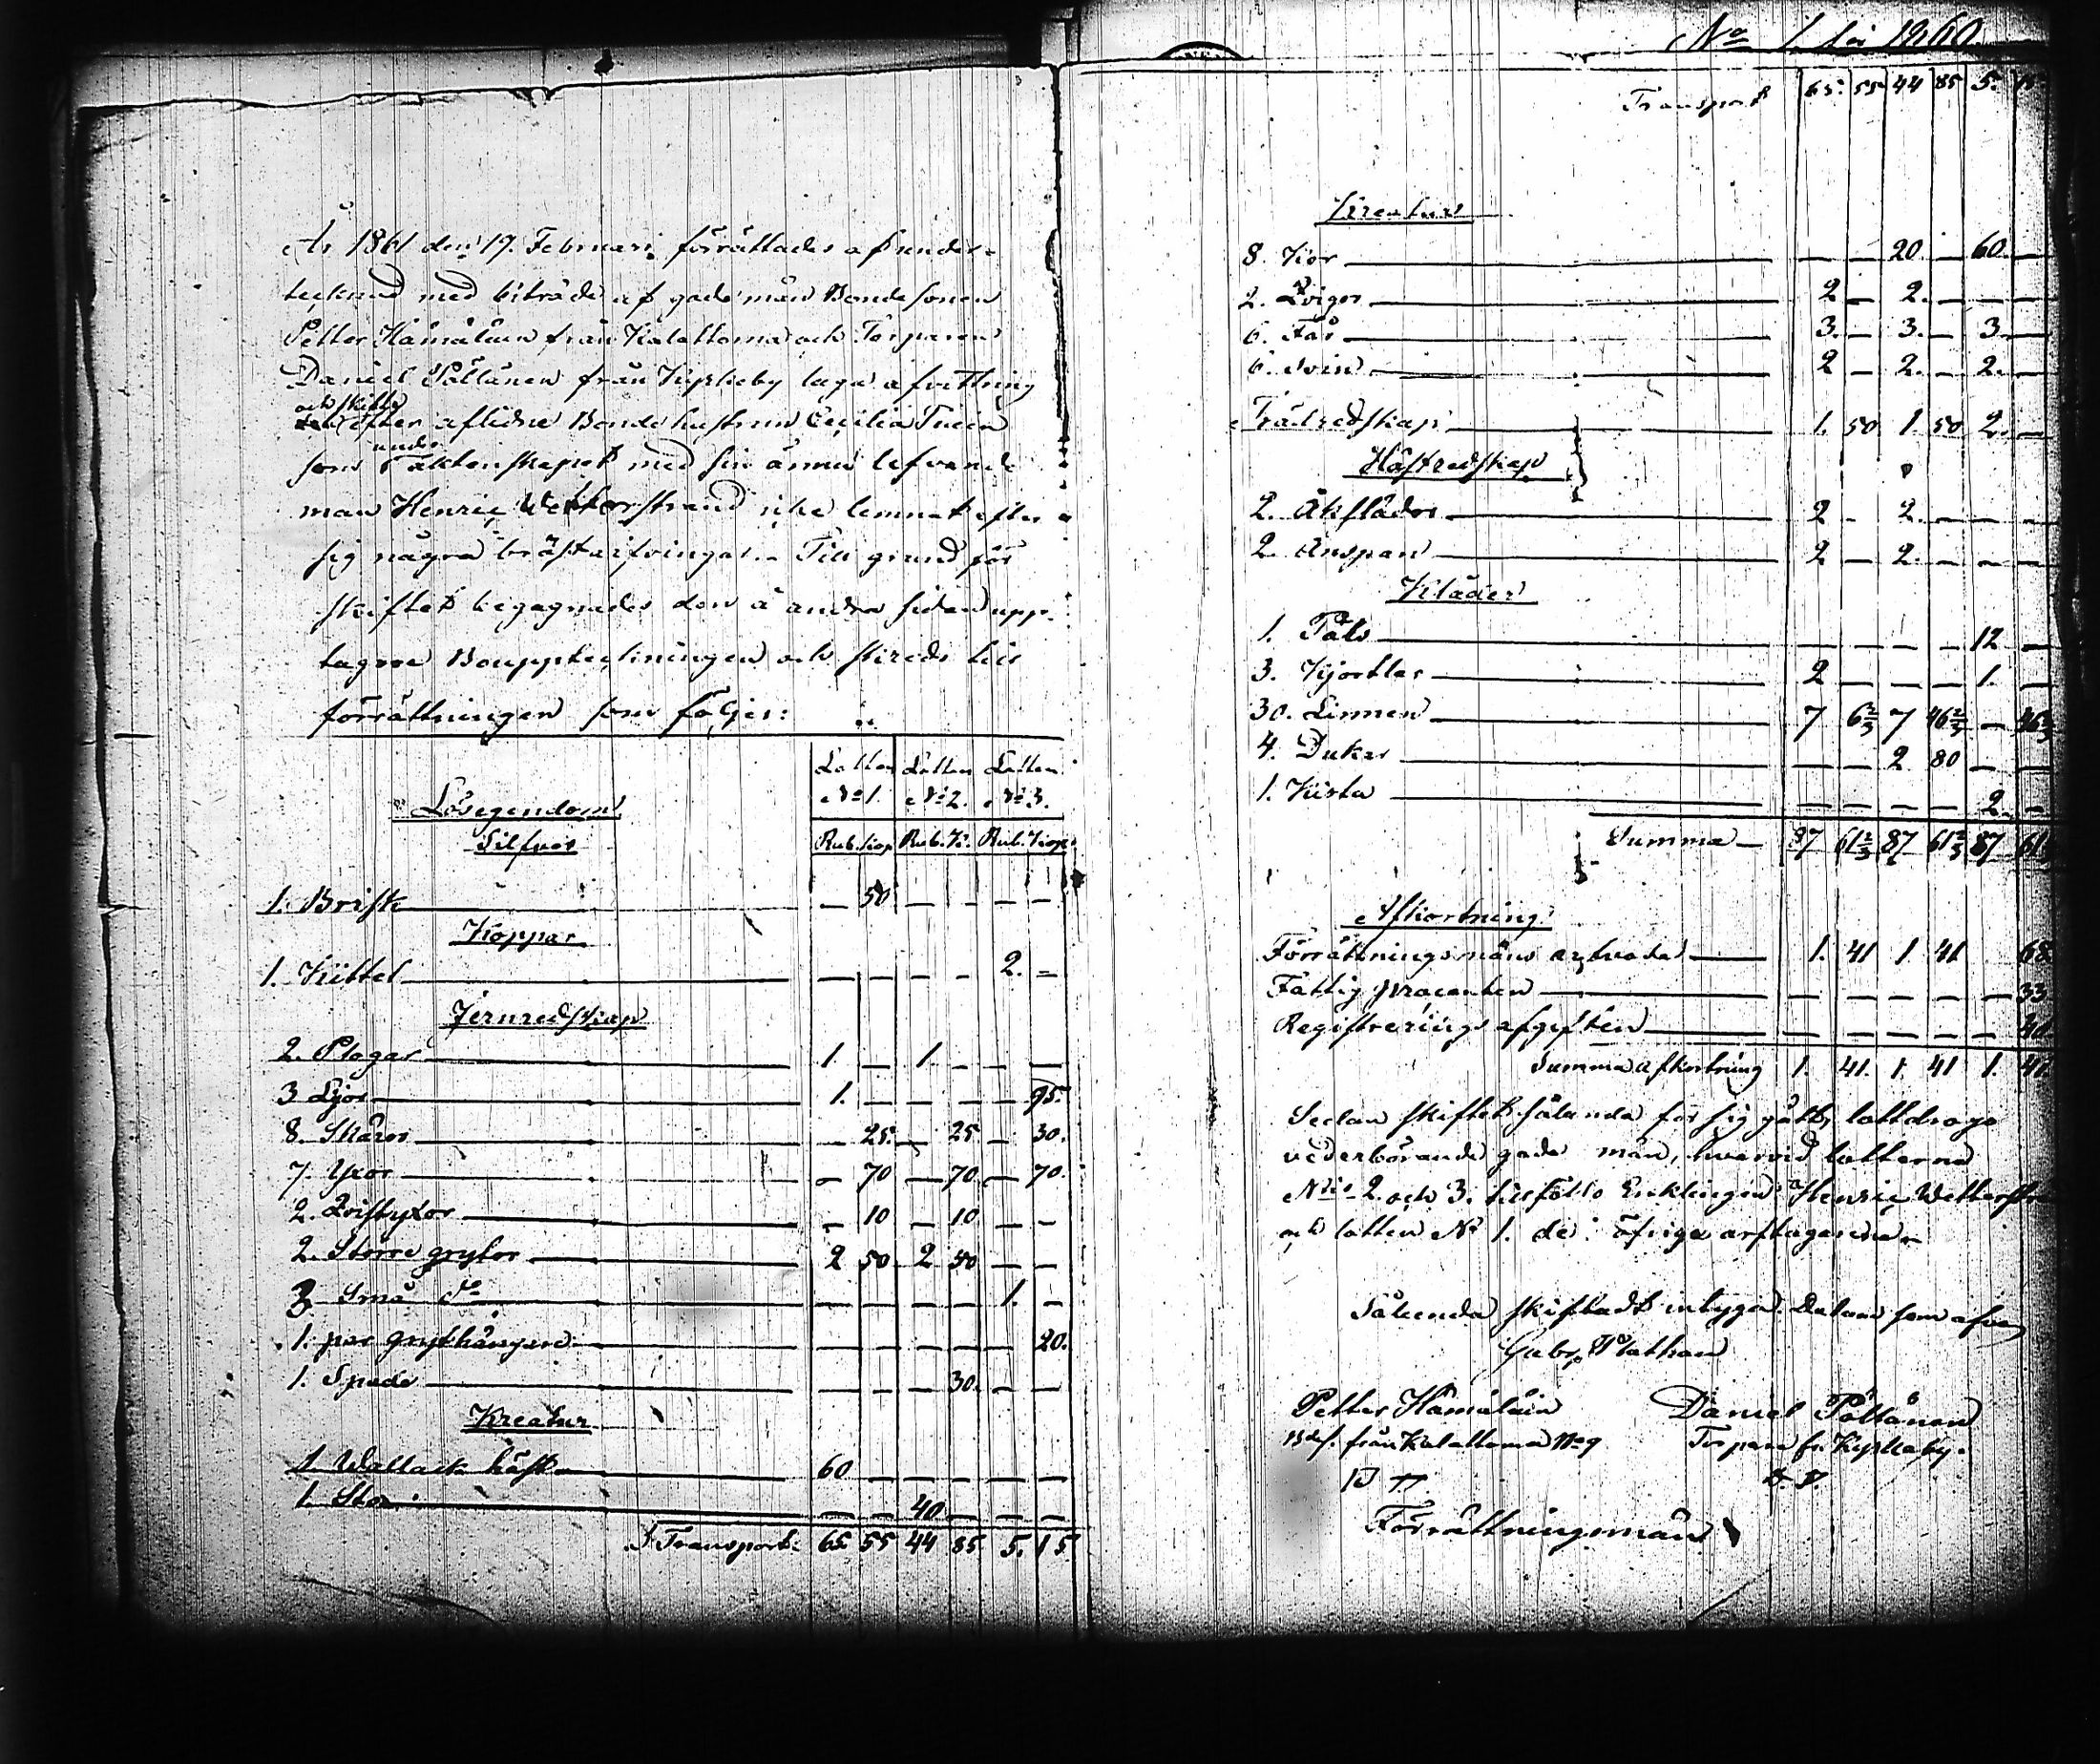 År 1861 den 19. Februari förrättades af under-
tecknad med biträde af gode män Bondesonen
Petter Hämäläin från Kalattoma och Torparen
Daniel Pöllänen från Kyrkoby laga afvittring
och skifte
efter aflidne Bonde hustrun Cecilia
under
som äktenskapet med sin ännu lefvande
man Henric Wetterstrand icke lemnat efter
sig några bröstarfvingar. Till grund för
skiftet begagnades den å andra sidan upp-
tagne Bouppteckningen och skreds till
förrättningen som följer:
Lotten Lotten Lotten
No 1. No 2. No 3.
Lösegendom
Silfver
Rub. Kop. Rub. K. Rub. Kop.
1. Brisk — 50 — — — —
Koppar
1. Kittel — — — — 2. —
Jernredskap
2. Plogar 1. — 1. — — —
3 Ljor 1. — — — — 95.
8. Skäror — 25. — 25 — 30.
7. Yxor — 70 — 70 — 70.
2. Qvistyxor — 10 — 10 — —
2. Större grytor 2 50 2 50 — —
3 Små do — — — — 1. —
1. par grythängare — — — — — 20.
1. Spade — — — 30. — —
Kreatur
1 Wallack häst 60 — — — — —
1. Sto — — 40 — — —
Transport 65 55 44 85 5. 15.
No 1. för 1860.
Transport 65. 55 44 85 5. 15
Kreatur
8. Kor — — 20. — 60. —
2. Qvigor 2 — 2. — — —
6. Får 3. — 3. — 3 —
6. Svin 2 — 2. — 2. —
Trädredskap 1. 50 1 50 2. —
Hästredskap
2. Åkslädor 2 — 2. — — —
2. Anspan 2 — 2. — — —
Kläder
1. Päls — — — — 12 —
3. Kjortlar 2 — — — 1. —
30. Linnen 7 6 2/3 7 46 2/3 — 46 2/3
4. Dukar — — 2 80 — —
1. Kista — — — — 2. —
Summa — 87 61 2/3 87 61 2/3 87 61
Afkortning
Förrättningsmäns arfvode 1. 41 1 41 68
Fattig procenten — — — — — 33
Registrerings afgiften — — — — — 40
Summa afkortning 1. 41. 1. 41 1. 41
Sedan skiftet sålunda för sig gått, lottdrogo
vederbörande gode män, hvarvid lotterne
Nris 2. och 3. tillföllo Enklingen Henric Wetterstr
och lotten No 1. de öfriga arftagarene.
Sålunda skiftadt intygar. Datum som ofvan
Gabr. Plathan
Petter Hämäläin
Bds. från Kalattoma No 9
Daniel Pöllänen
Torpare fr. Kyrkoby.
Förrättningsmän